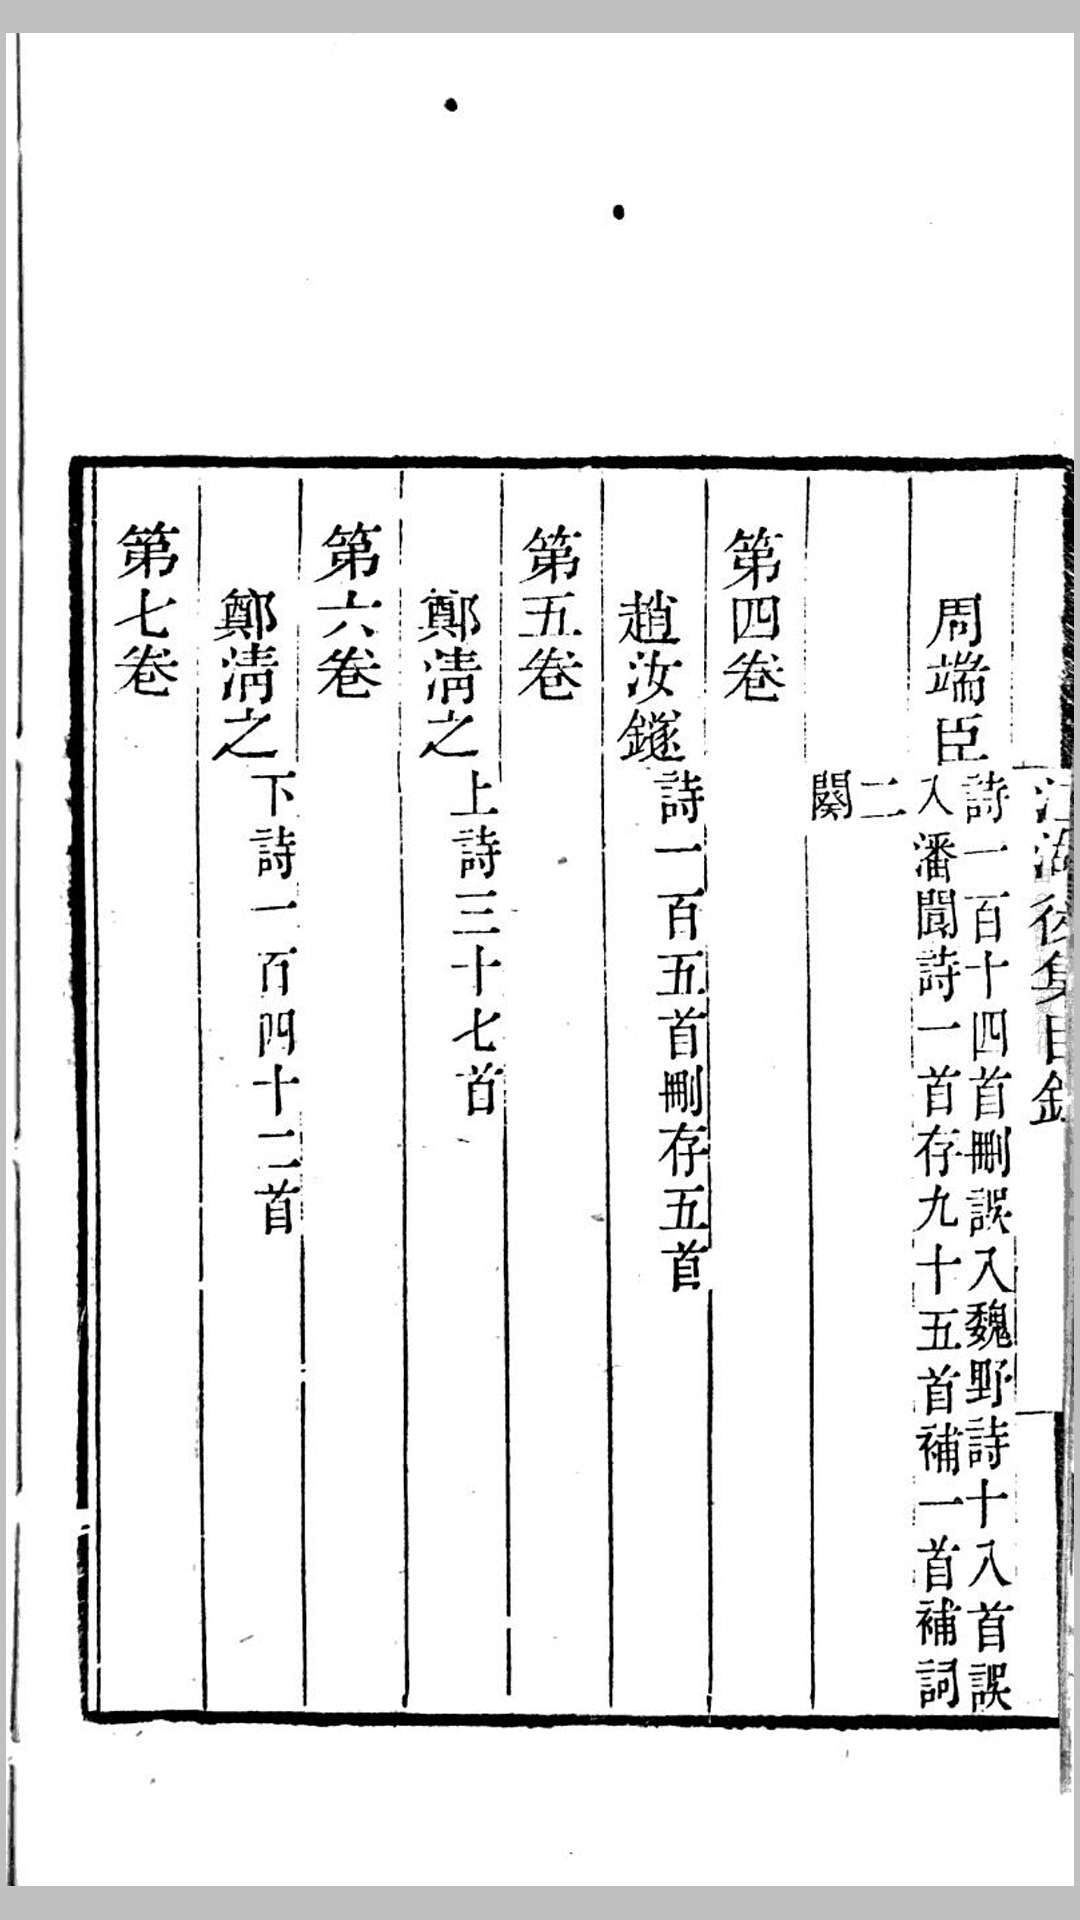 江湖後集目錄
周端臣
詩一百十四首刪誤入魏野詩十八首誤
入潘閬詩一首存九十五首補一首補詞
二
闋
第四卷
趙汝鐩 詩一百五首刪存五首
第五卷
鄭清之 上詩三十七首
第六卷
鄭清之 下詩一百四十二首
第七卷